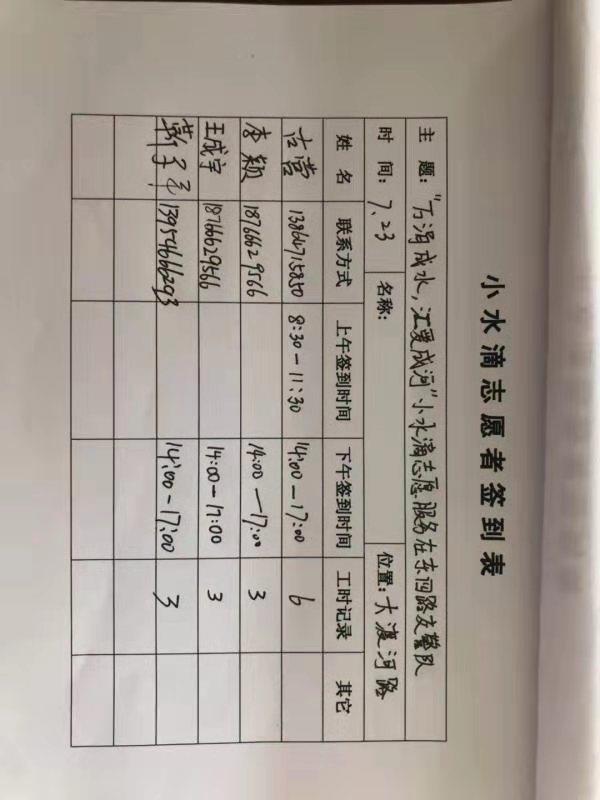 小水滴志愿者签到表
主 题:"万涓成水,汇爱成河"小水滴志愿服务在东四路交警队
时 间: 7.23 名称: 位置:大渡河路
姓 名 联系方式 上午签到时间 下午签到时间 工时记录 其它
古营 13864715850 8:30-11:30 14:00-17:00 6
李颖 18766629566 14:00-17:00 3
王成宇 18766629566 14:00-17:00 3
靳 13954666293 14:00-17:00 3